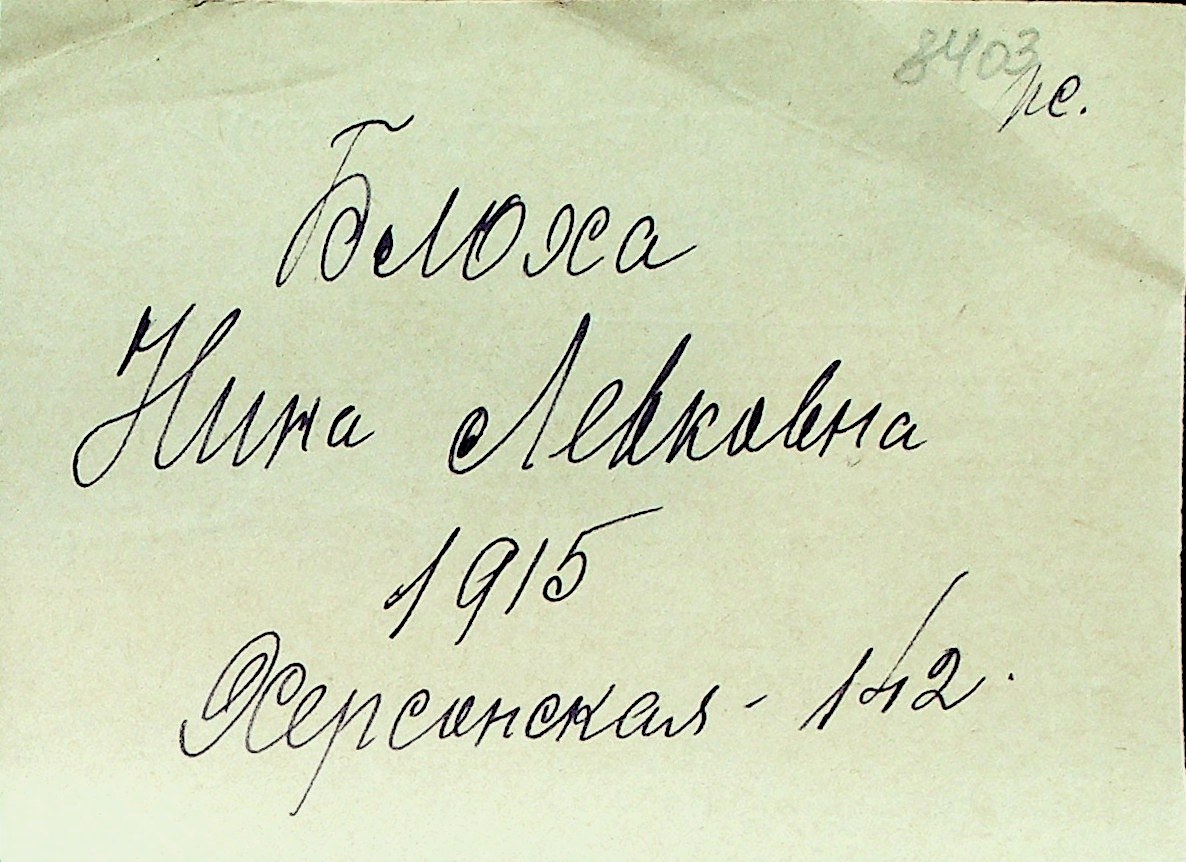 8403
рс.
Блоха
Нина Левковна
1915
Херсонская - 142.